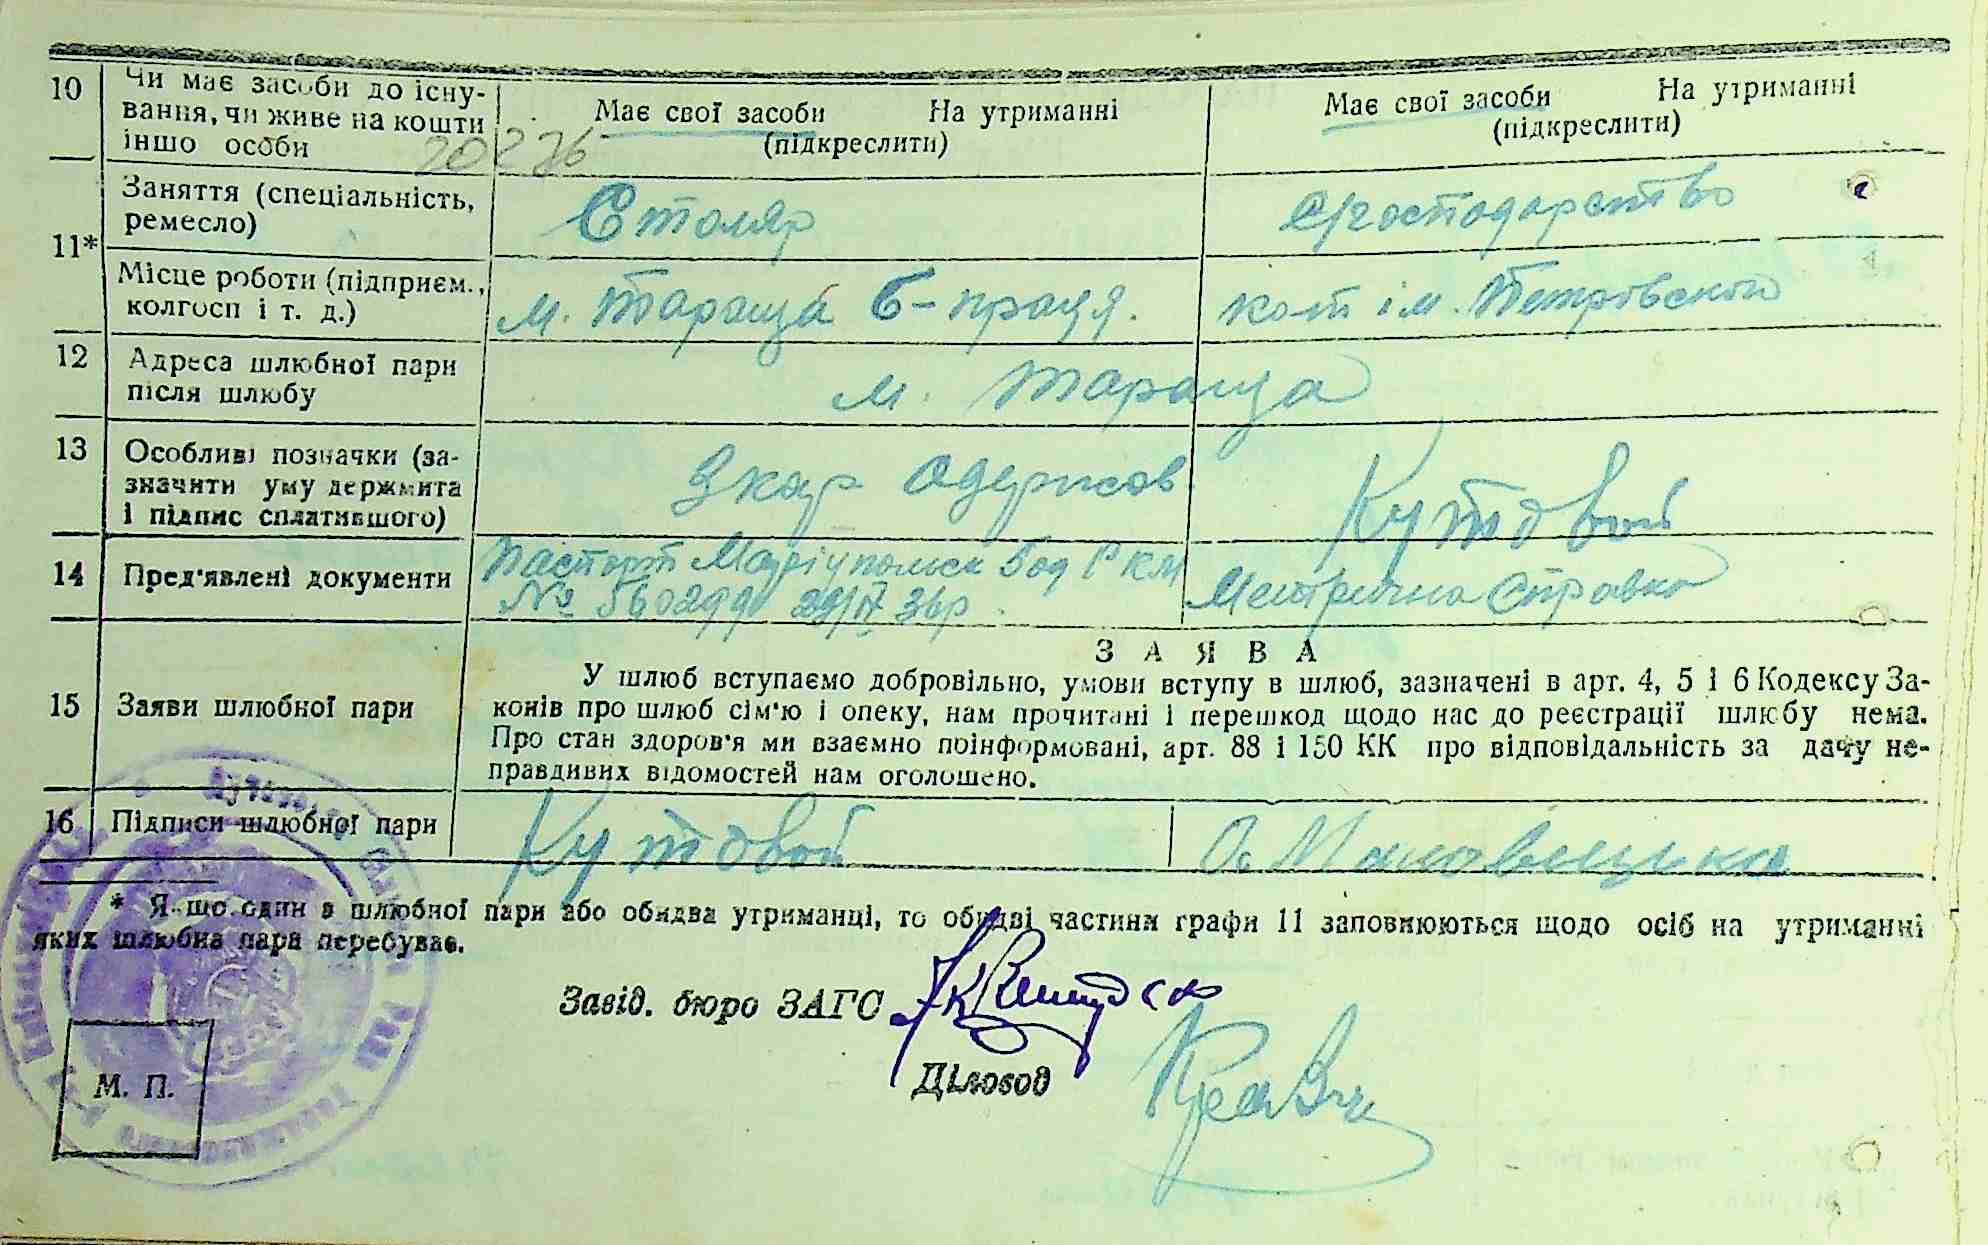 10 Чи має засоби до існу-
вання, чи живе на кошти
іншо особи
Має свої засоби На утриманні
(підкреслити)
Має свої засоби На утриманні
(підкреслити)
20276
11*
Заняття (спеціальність,
ремесло)
Столяр
с/господарство
Місце роботи (підприєм.,
колгосп і т. д.)
м. Тараща б-праця.
ім. Петровского
12 Адреса шлюбної пари
після шлюбу
м. Тараща
13 Особливі позначки (за-
значити уму держмита
і підпис сплатившого)
3 кар одержав
Кутовой
14 Пред'явлені документи
Паспорт Маріупольск РКМ
№ 560299 29/IV 36р
Метрична Справка
15 Заяви шлюбної пари
ЗАЯВА
У шлюб вступаємо добровільно, умови вступу в шлюб, зазначені в арт. 4, 5 і 6 Кодексу За-
конів про шлюб сім'ю і опеку, нам прочитані і перешкод щодо нас до реєстрації шлюбу нема.
Про стан здоров'я ми взаємно поінформовані, арт. 88 і 150 КК про відповідальність за дачу не-
правдивих відомостей нам оголошено.
16 Підписи шлюбної пари
Кутовой
* Якщо один з шлюбної пари або обидва утриманці, то обидві частини графи 11 заповнюються щодо осіб на утриманні
яких шлюбна пара перебуває.
Завід. бюро ЗАГС
Діловод
М. П.